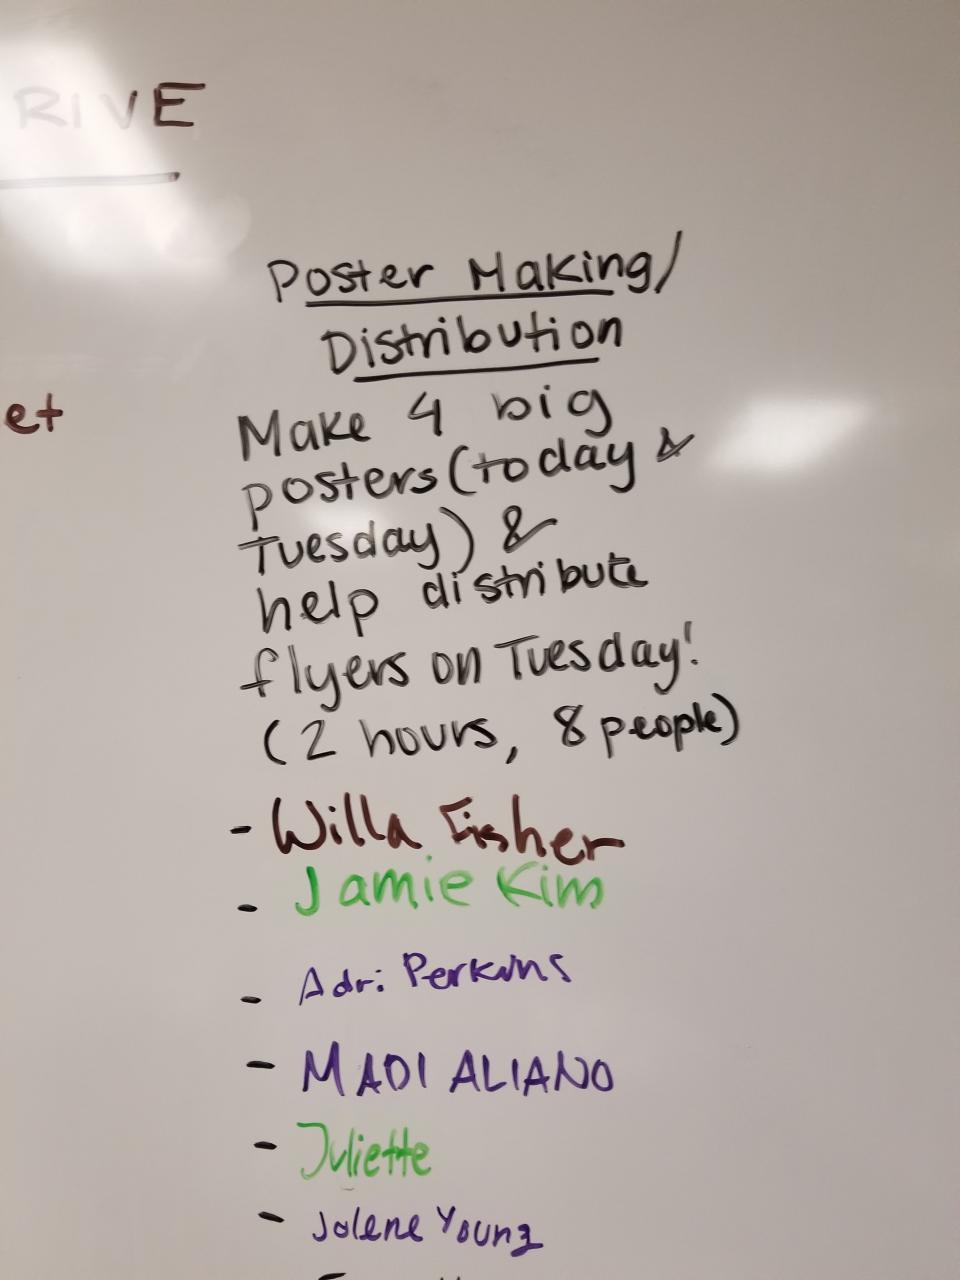 RIVE
et
Poster Making/
Distribution
Make 4 big
posters (today &
Tuesday) &
help distribute
flyers on Tuesday!
(2 hours, 8 people)
- Willa Fisher
- Jamie Kim
- Adri Perkins
- MADI ALIANO
- Juliette
- Jolene Young